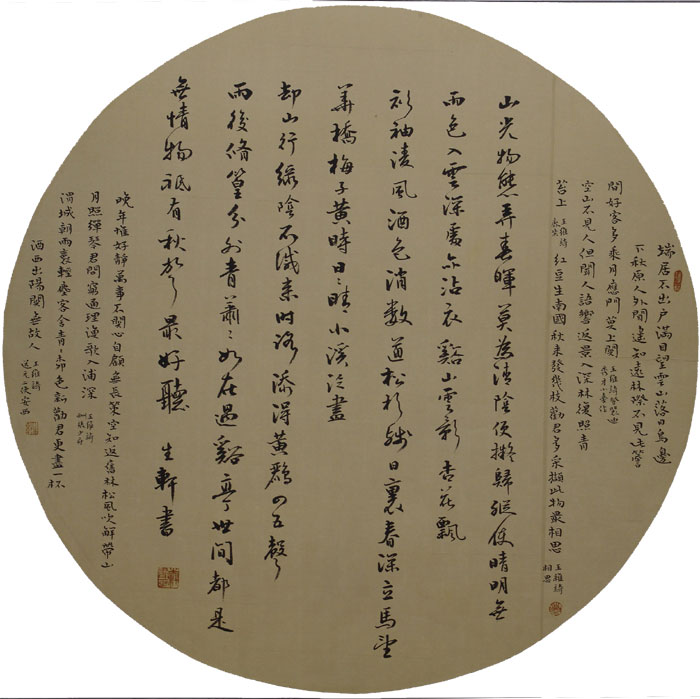 端居不出戶滿目望雲山落日鳥邊
下秋原人外閒遙知遠林際不見此簷
間好客多乘月應門莫上關 王維詩登裴迪
秀才小臺作
空山不見人但聞人語響返景入深林復照青
苔上 王維詩
鹿柴 紅豆生南國秋來發幾枝勸君多采擷此物最相思 王維詩
相思
山光物態弄春暉莫為清陰便擬歸縱使晴明無
雨色入雲深處亦沾衣谿山雲影杏花飄
衫袖凌風酒色消數道松杉殘日裏春深立馬望
華橋梅子黃時日〻晴小溪泛盡
却山行綠陰不減來時路添得黃鸝四五聲
雨後脩篁分外青蕭〻如在過谿亭世間都是
無情物祇有秋聲最好聽 生軒書
晚年惟好靜萬事不關心自顧無長策空知返舊林松風吹解帶山
月照彈琴君問窮通理漁歌入浦深 王維詩
酬張少府
渭城朝雨裛輕塵客舍青〻柳色新勸君更盡一杯
酒西出陽關無故人 王維詩
送元二使安西